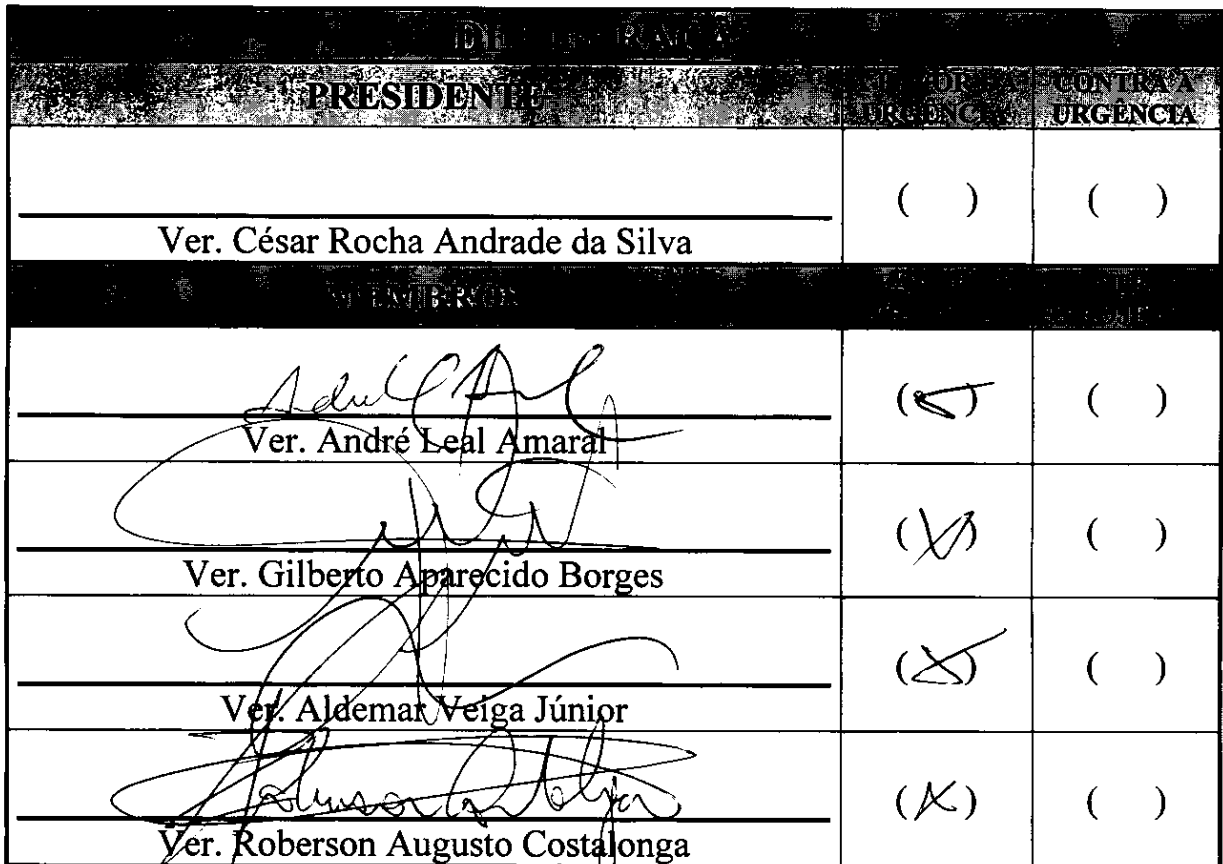 DELIBERAÇÃO
PRESIDENTE
A FAVOR DA URGÊNCIA
CONTRA A URGÊNCIA
( ) ( )
Ver. César Rocha Andrade da Silva
MEMBROS
( ) ( )
Ver. André Leal Amaral
(X) ( )
Ver. Gilberto Aparecido Borges
(X) ( )
Ver. Aldemar Veiga Júnior
(X) ( )
Ver. Roberson Augusto Costalonga